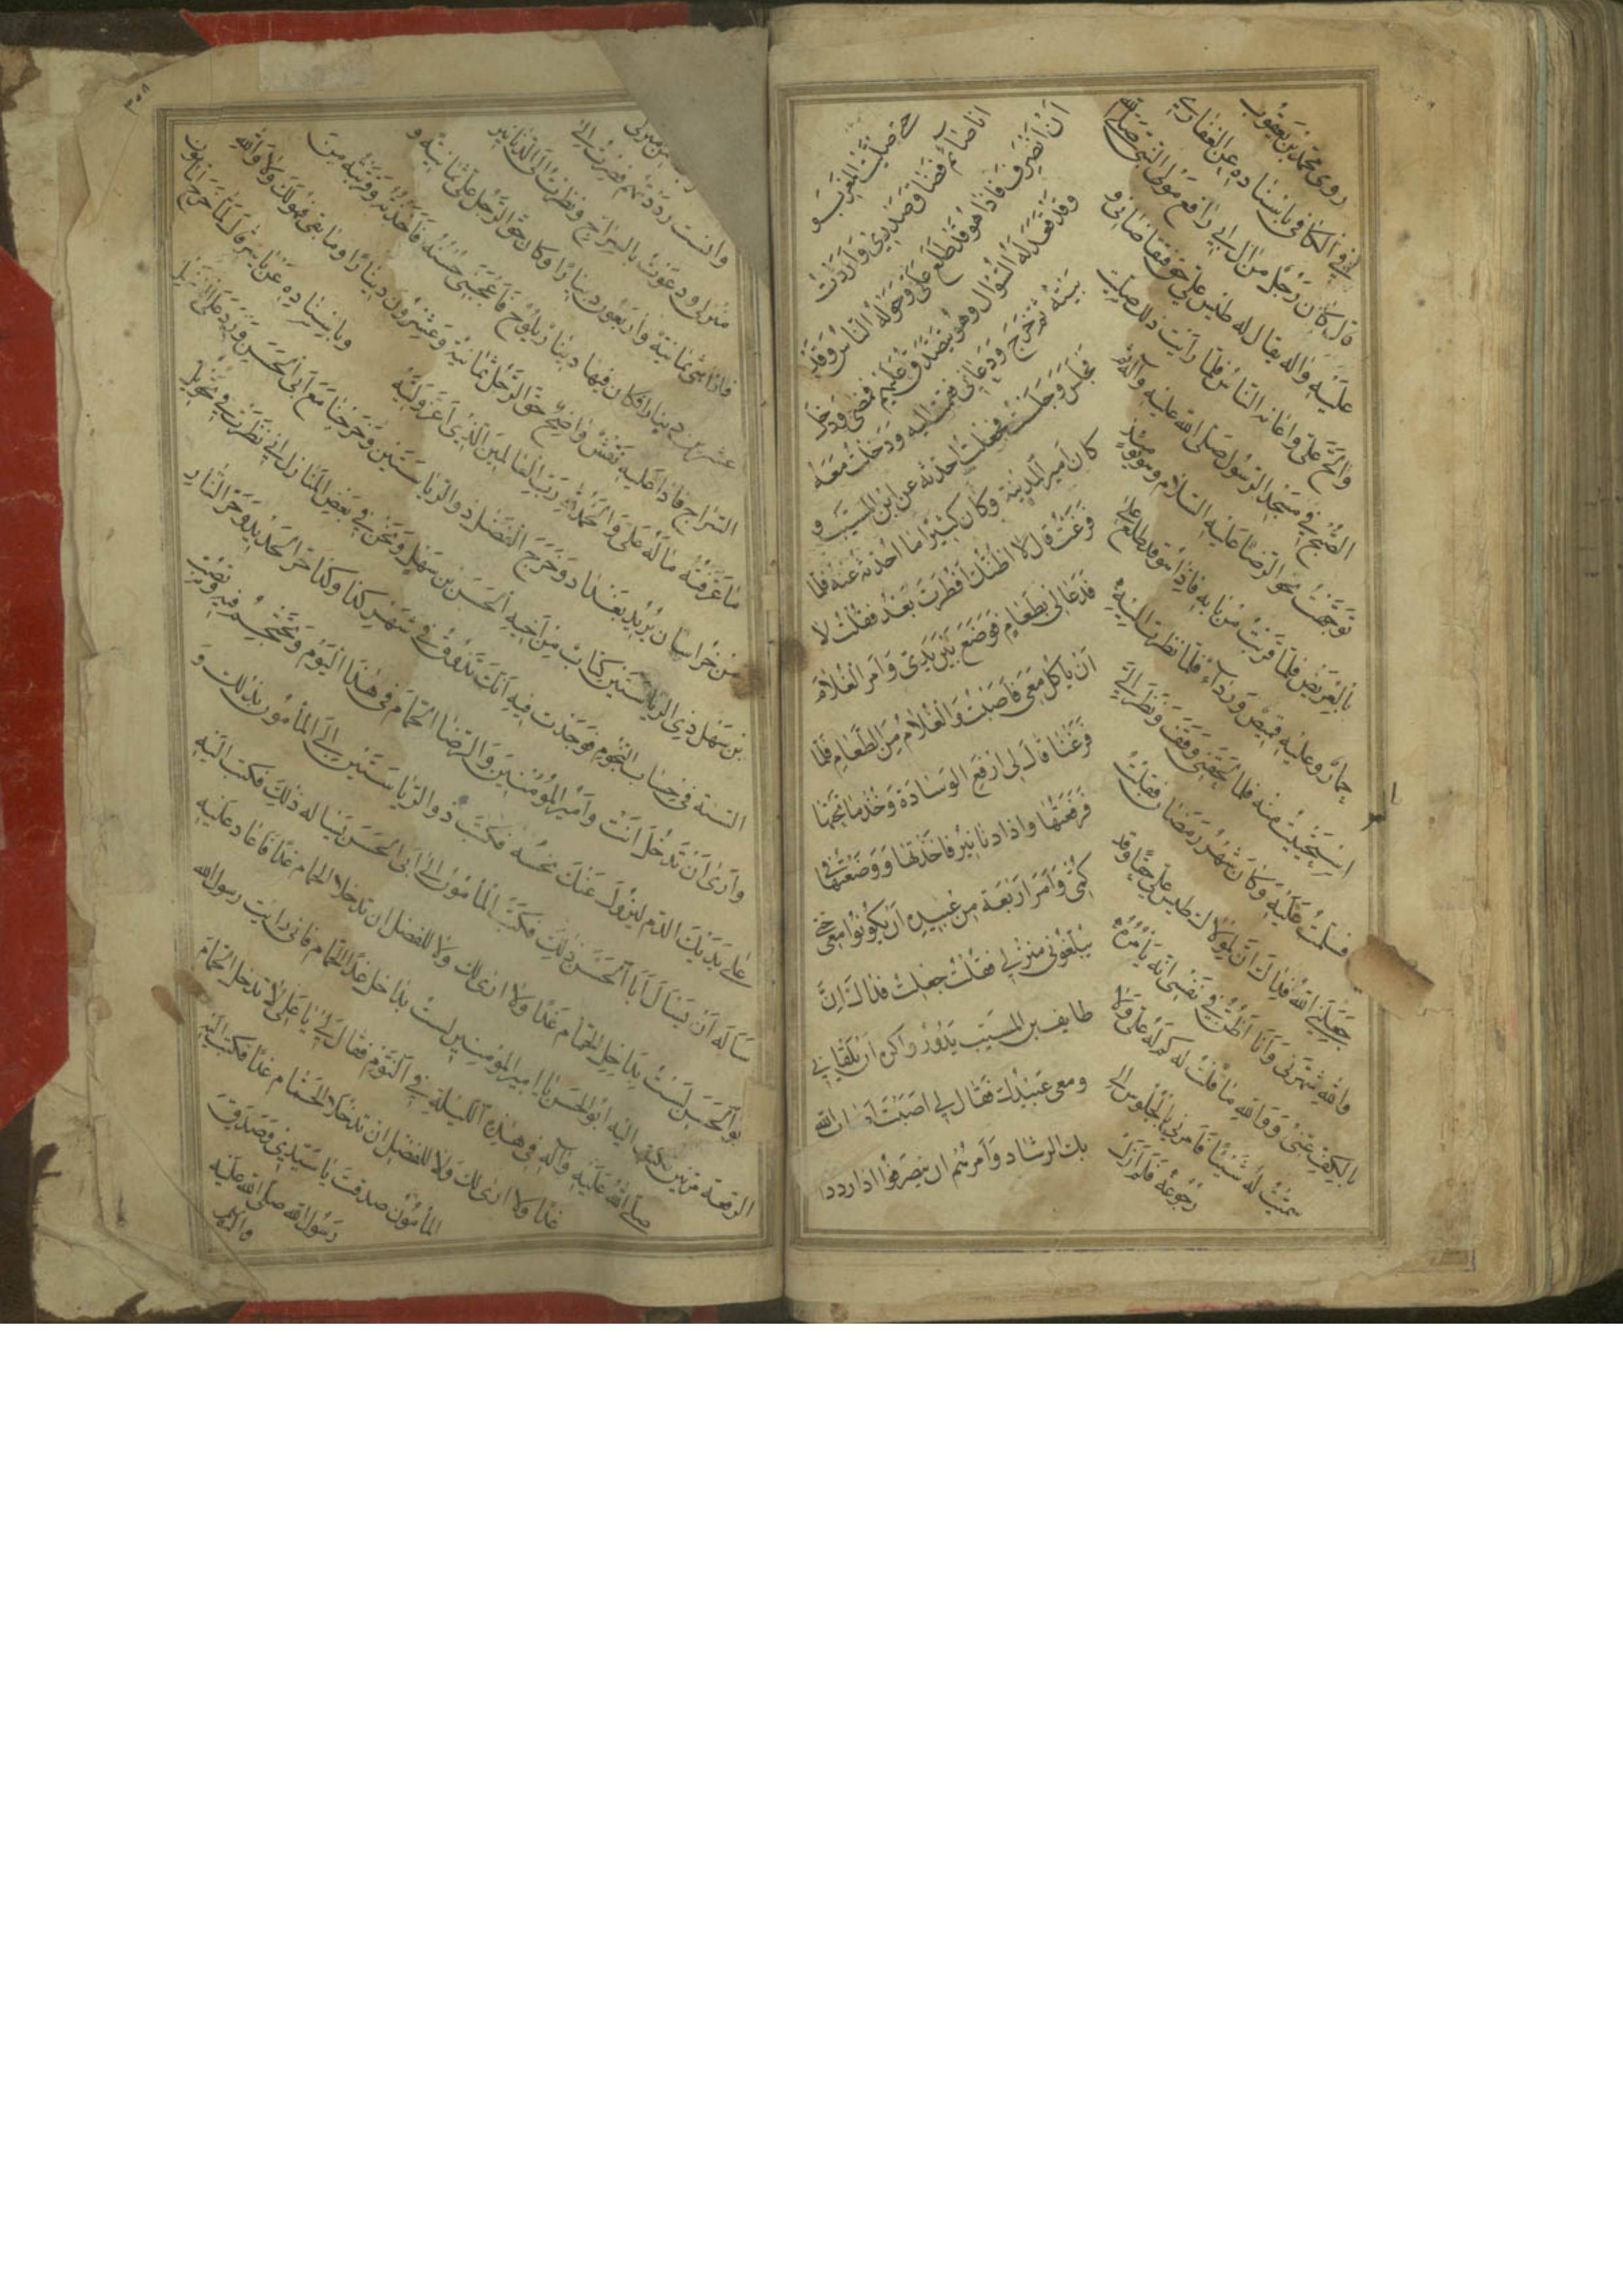 روى محمد بن يعقوب
في الكافي باسناده عن الغفاري
قال كان رجل من ال ابي رافع مولى النبي صلى الله
عليه واله يقال له طيس علي حق فتقاضاني و
والح علي واعانه الناس فلما رأيت ذلك صليت
الصبح في مسجد الرسول صلى الله عليه وآله ثم
توجهت نحو الرضا عليه السلام وهو يومئذ
بالعريض فلما قربت من بابه فاذا هو قد طلع على
حمار وعليه قميص ورداء فلما نظرت اليه
استحييت منه فلما لحقني وقف ونظر الي
فسلمت عليه وكان شهر رمضان فقلت
جعلني الله فداك ان لمولاك طيس علي حقا وقد
والله شهرني وأنا أظن في نفسي انه يأمره
بالكف عني ووالله ما قلت له كم له علي ولا
سميت له شيئا فأمرني بالجلوس الى
رجوعه فلم أزل
حتى صليت المغرب و
انا صائم فضاق صدري وأردت
أن أنصرف فاذا هو قد طلع علي وحوله الناس وقد
وقد قعد له السؤال وهو يتصدق عليهم فمضى ودخل
بيته ثم خرج ودعاني فقمت اليه ودخلت معه
فجلس وجلست فجعلت احدثه عن ابن المسيب و
كان أمير المدينة وكان كثيرا ما أحدثه عنه فلما
فرغت قال لا اظنك أفطرت بعد فقلت لا
فدعا لي بطعام فوضع بين يدي وأمر الغلام
أن يأكل معي فأصبت والغلام من الطعام فلما
فرغنا قال لي ارفع الوسادة وخذ ما تحتها
فرفعتها واذا دنانير فاخذتها ووضعتها في
كمي وأمر أربعة من عبيده أن يكونوا معي حتى
يبلغوني منزلي فقلت جعلت فداك ان
طايف بن المسيب يدور واكره أن يلقاني
ومعي عبيدك فقال لي اصبت أصاب الله
بك الرشاد وأمرهم ان ينصرفوا اذا رددتـ
من منزلي
وانست رددتهم فصرت الى
منزلي ودعوت بالسراج ونظرت الى الدنانير
فاذا هي ثمانية وأربعون دينارا وكان حق الرجل علي ثمانية و
عشرين دينارا فكان فيها دينار يلوح فأعجبني حسنه فأخذته وقربته من
السراج فاذا عليه نقش واضح حق الرجل ثمانية وعشرون دينارا وما بقي فهو لك ولا والله
ما عرفته ما له علي والحمد لله رب العالمين الذي أعز وليه
وباسناده عن ياسر قال لما خرج المأمون
من خراسان يريد بغداد وخرج الفضل ذو الرياستين وخرجنا مع أبي الحسن ورد على الفضل
بن سهل ذي الرياستين كتاب من أخيه الحسن بن سهل ونحن في بعض المنازل اني نظرت في تحويل
السنة في حساب النجوم فوجدت فيه انك تذوق في شهر كذا وكذا حر الحديد وحر النار
وأرى أن تدخل أنت وأمير المؤمنين والرضا الحمام في هذا اليوم وتحتجم فيه وتصب
على بدنك الدم ليزول عنك نحسه فكتب ذو الرياستين الى المأمون بذلك و
سأله أن يسأل أبا الحسن ذلك فكتب المأمون الى أبي الحسن يسأله ذلك فكتب اليه
بو الحسن لست بداخل الحمام غدا ولا ارى لك ولا للفضل ان تدخلا الحمام غدا فأعاد عليه
الرقعة مرتين فكتب اليه ابو الحسن يا امير المؤمنين لست بداخل غدا الحمام فاني رأيت رسول الله
صلى الله عليه وآله في هذه الليلة في النوم فقال لي يا علي لا تدخل الحمام
غدا ولا ارى لك ولا للفضل ان تدخلا الحمام غدا فكتب اليه
المأمون صدقت يا سيدي وصدق
رسول الله صلى الله عليه
وآله